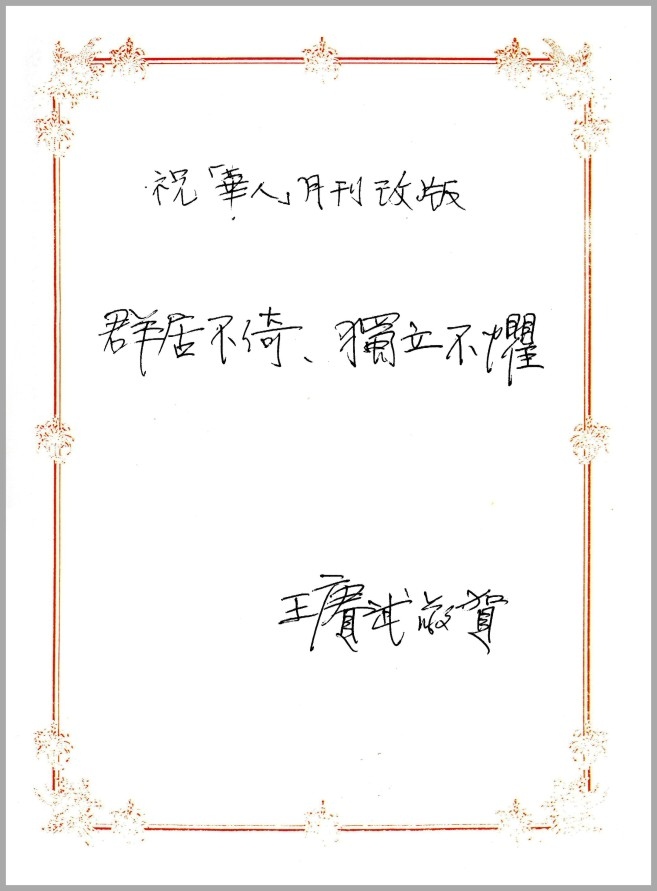 祝「華人」月刊改版
群居不倚、獨立不懼
王賡武敬賀